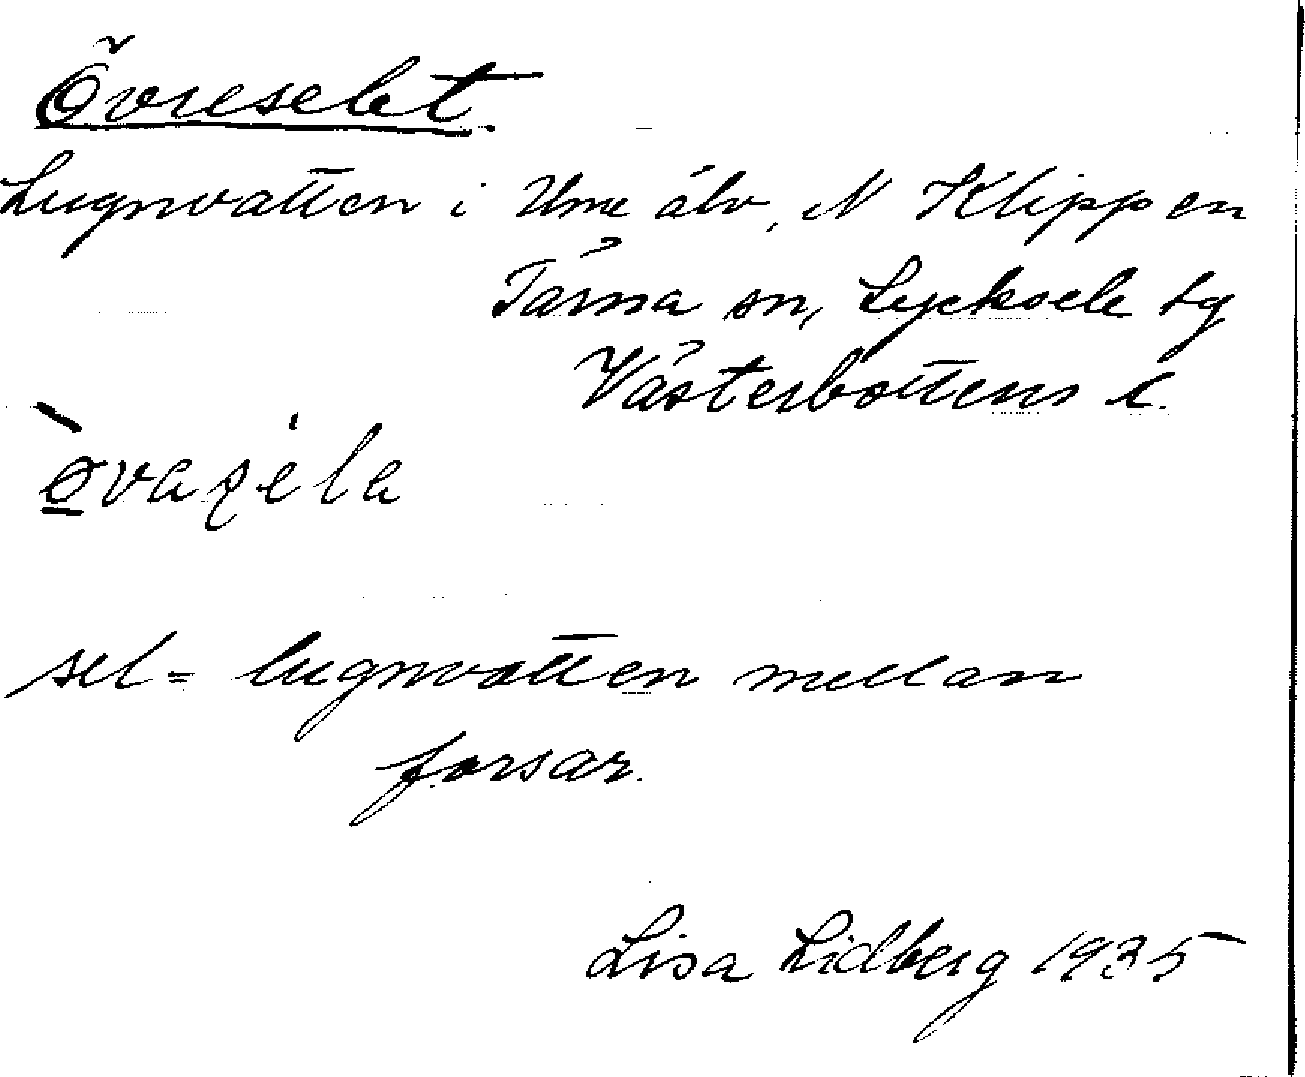 Övreselet
Lugnvatten i Ume älv, N Klippen
Tärna sn, Lycksele tg
Västerbottens l.
sel = lugnvatten mellan
forsar.
Lisa Lidberg 1935